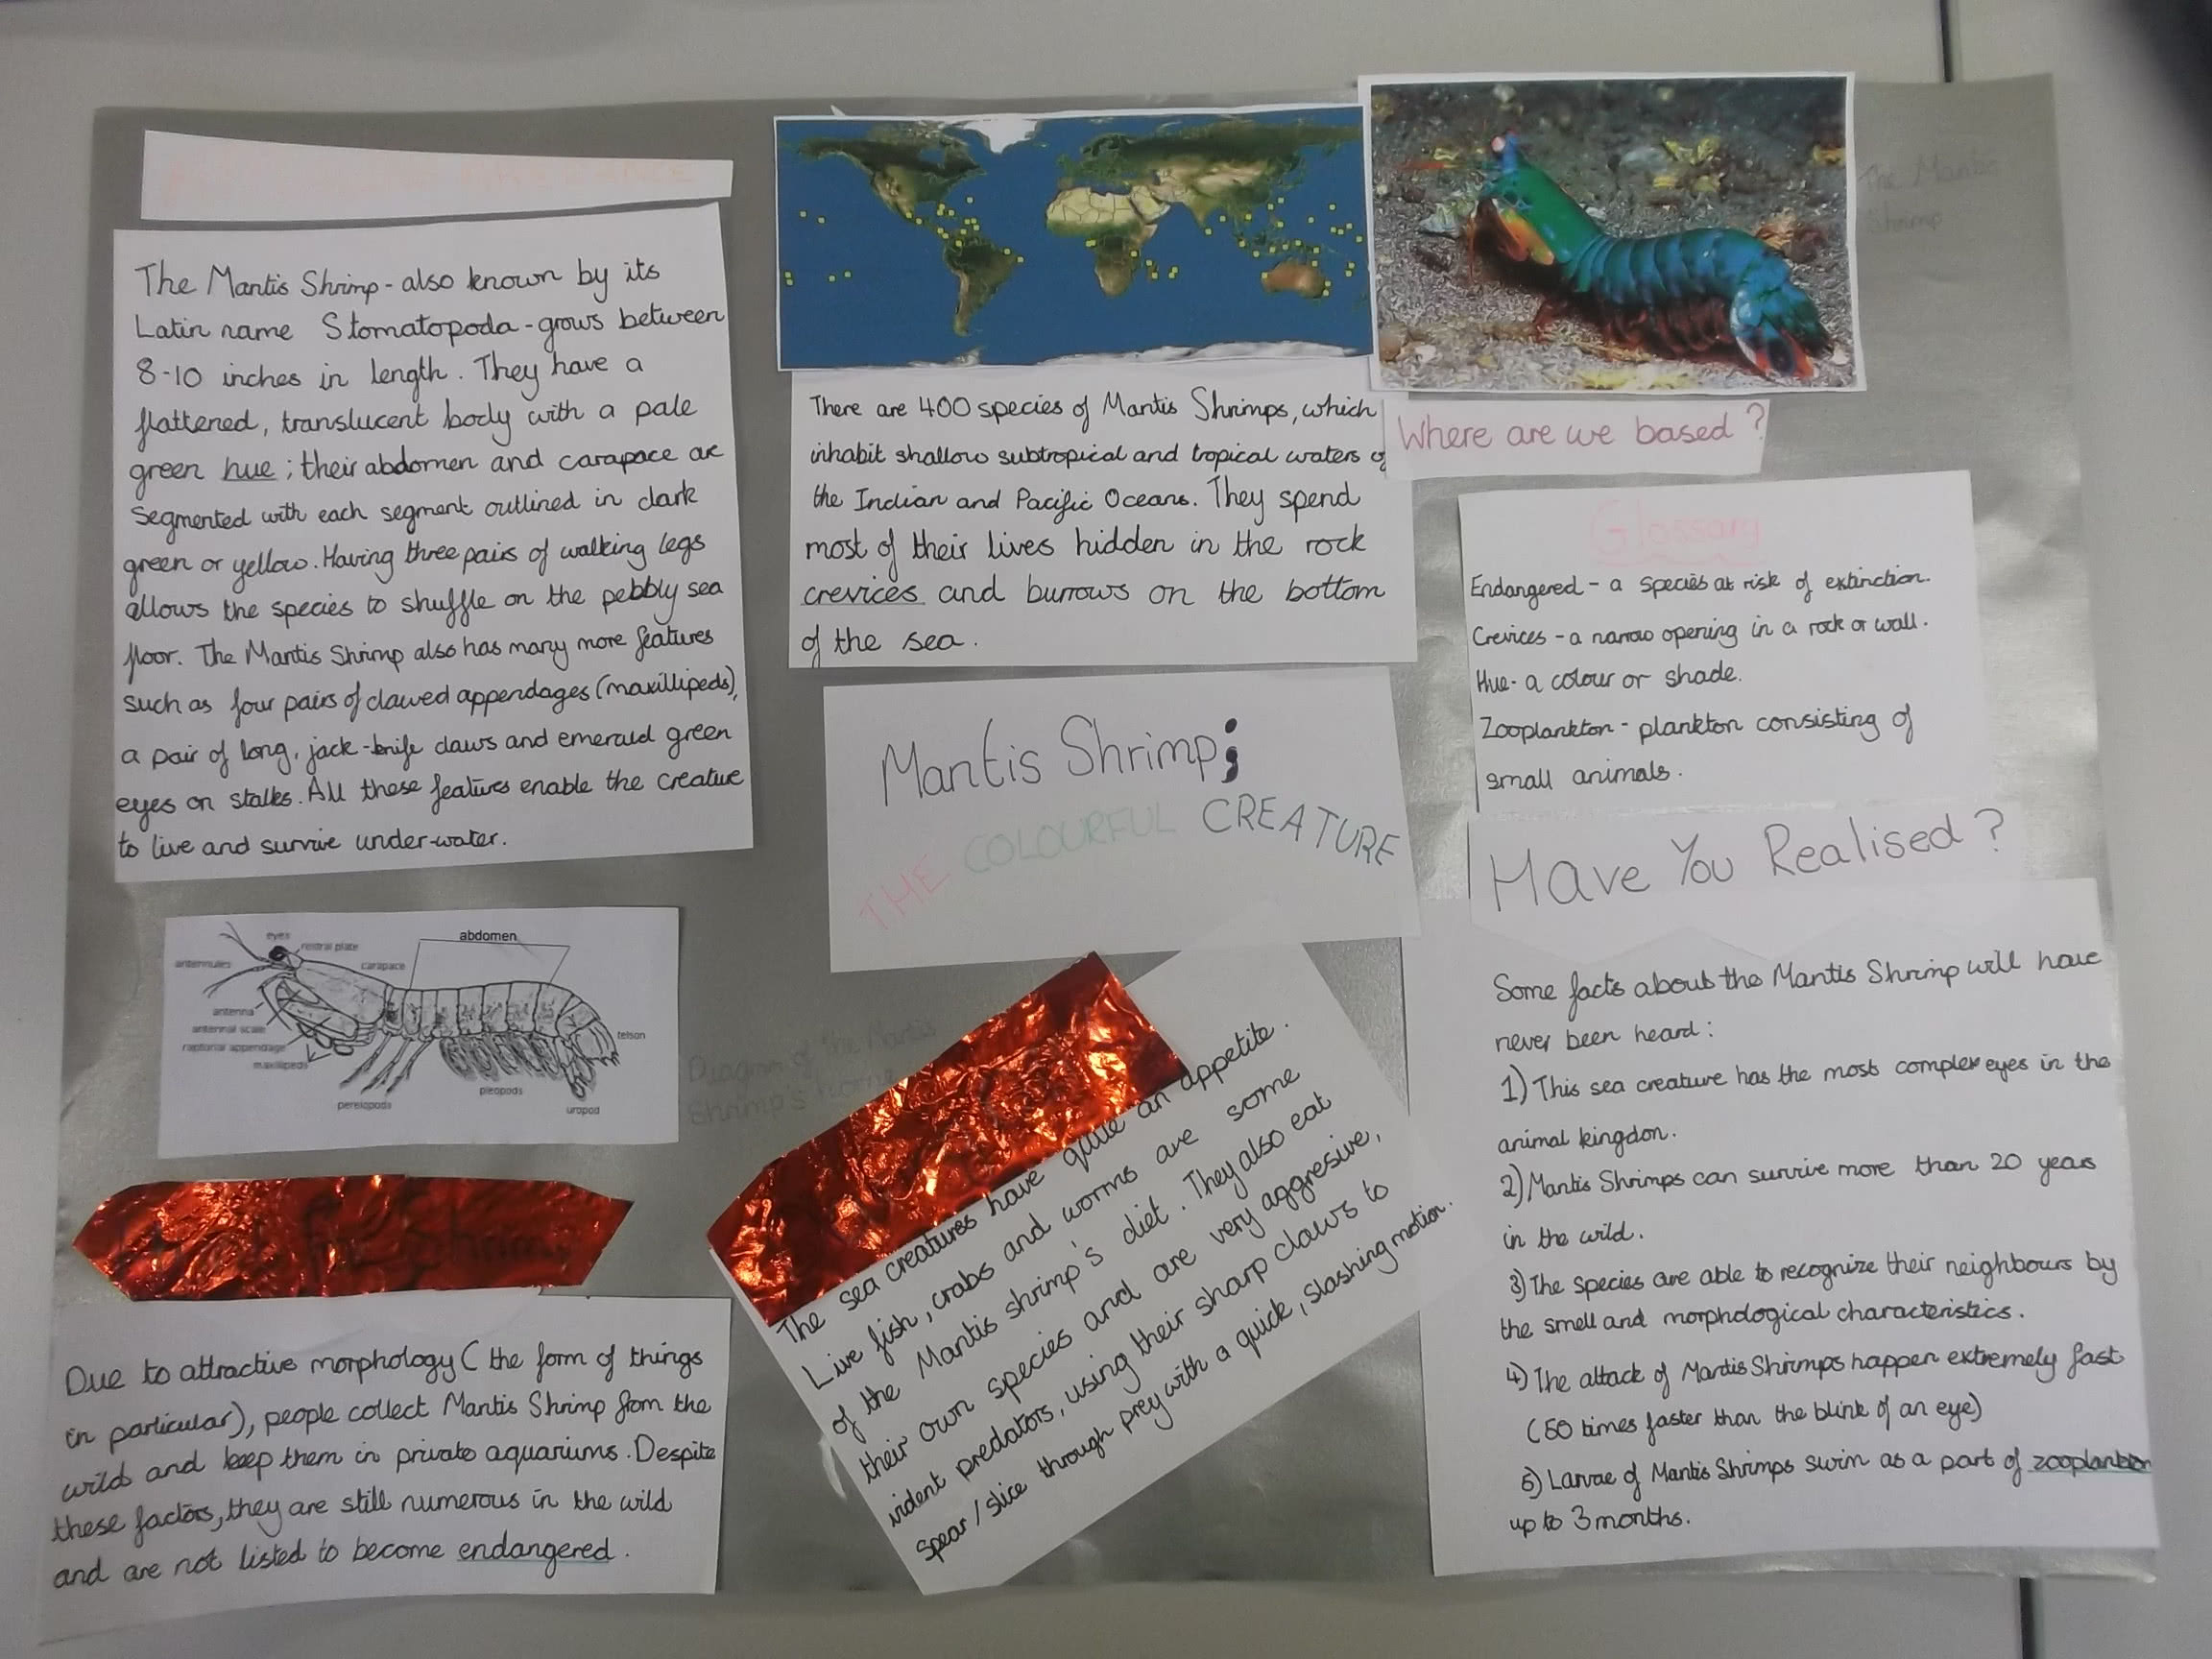 The Mantis Shrimp - also known by its
Latin name Stomatopoda - grows between
8-10 inches in length. They have a
flattened, translucent body with a pale
green hue; their abdomen and carapace are
segmented with each segment outlined in dark
green or yellow. Having three pairs of walking legs
allows the species to shuffle on the pebbly sea
floor. The Mantis Shrimp also has many more features
such as four pairs of clawed appendages (maxillipeds),
a pair of long, jack-knife claws and emerald green
eyes on stalks. All these features enable the creature
to live and survive under-water.
eyes
rostral plate
abdomen
antennules
carapace
antenna
antennal scale
raptorial appendage
maxillipeds
telson
pereiopods
pleopods
uropod
Diagram of The Mantis
Shrimp's
for Shrimp
Due to attractive morphology (the form of things
in particular), people collect Mantis Shrimp from the
wild and keep them in private aquariums. Despite
these factors, they are still numerous in the wild
and are not listed to become endangered.
There are 400 species of Mantis Shrimps, which
inhabit shallow subtropical and tropical waters of
the Indian and Pacific Oceans. They spend
most of their lives hidden in the rock
crevices and burrows on the bottom
of the sea.
Mantis Shrimp;
THE COLOURFUL CREATURE
The sea creatures have quite an appetite.
Live fish, crabs and worms are some
of the Mantis shrimp's diet. They also eat
their own species and are very aggresive,
virdent predators, using their sharp claws to
spear/slice through prey with a quick, slashing motion.
The Mantis
Shrimp
Where are we based?
Glossary
Endangered - a species at risk of extinction.
Crevices - a narrow opening in a rock or wall.
Hue - a colour or shade.
Zooplankton - plankton consisting of
small animals.
Have You Realised?
Some facts about the Mantis Shrimp will have
never been heard:
1) This sea creature has the most complex eyes in the
animal kingdon.
2) Mantis Shrimps can survive more than 20 years
in the wild.
3) The species are able to recognize their neighbours by
the smell and morphological characteristics.
4) The attack of Mantis Shrimps happen extremely fast
(50 times faster than the blink of an eye)
5) Larvae of Mantis Shrimps swim as a part of zooplankton
up to 3 months.